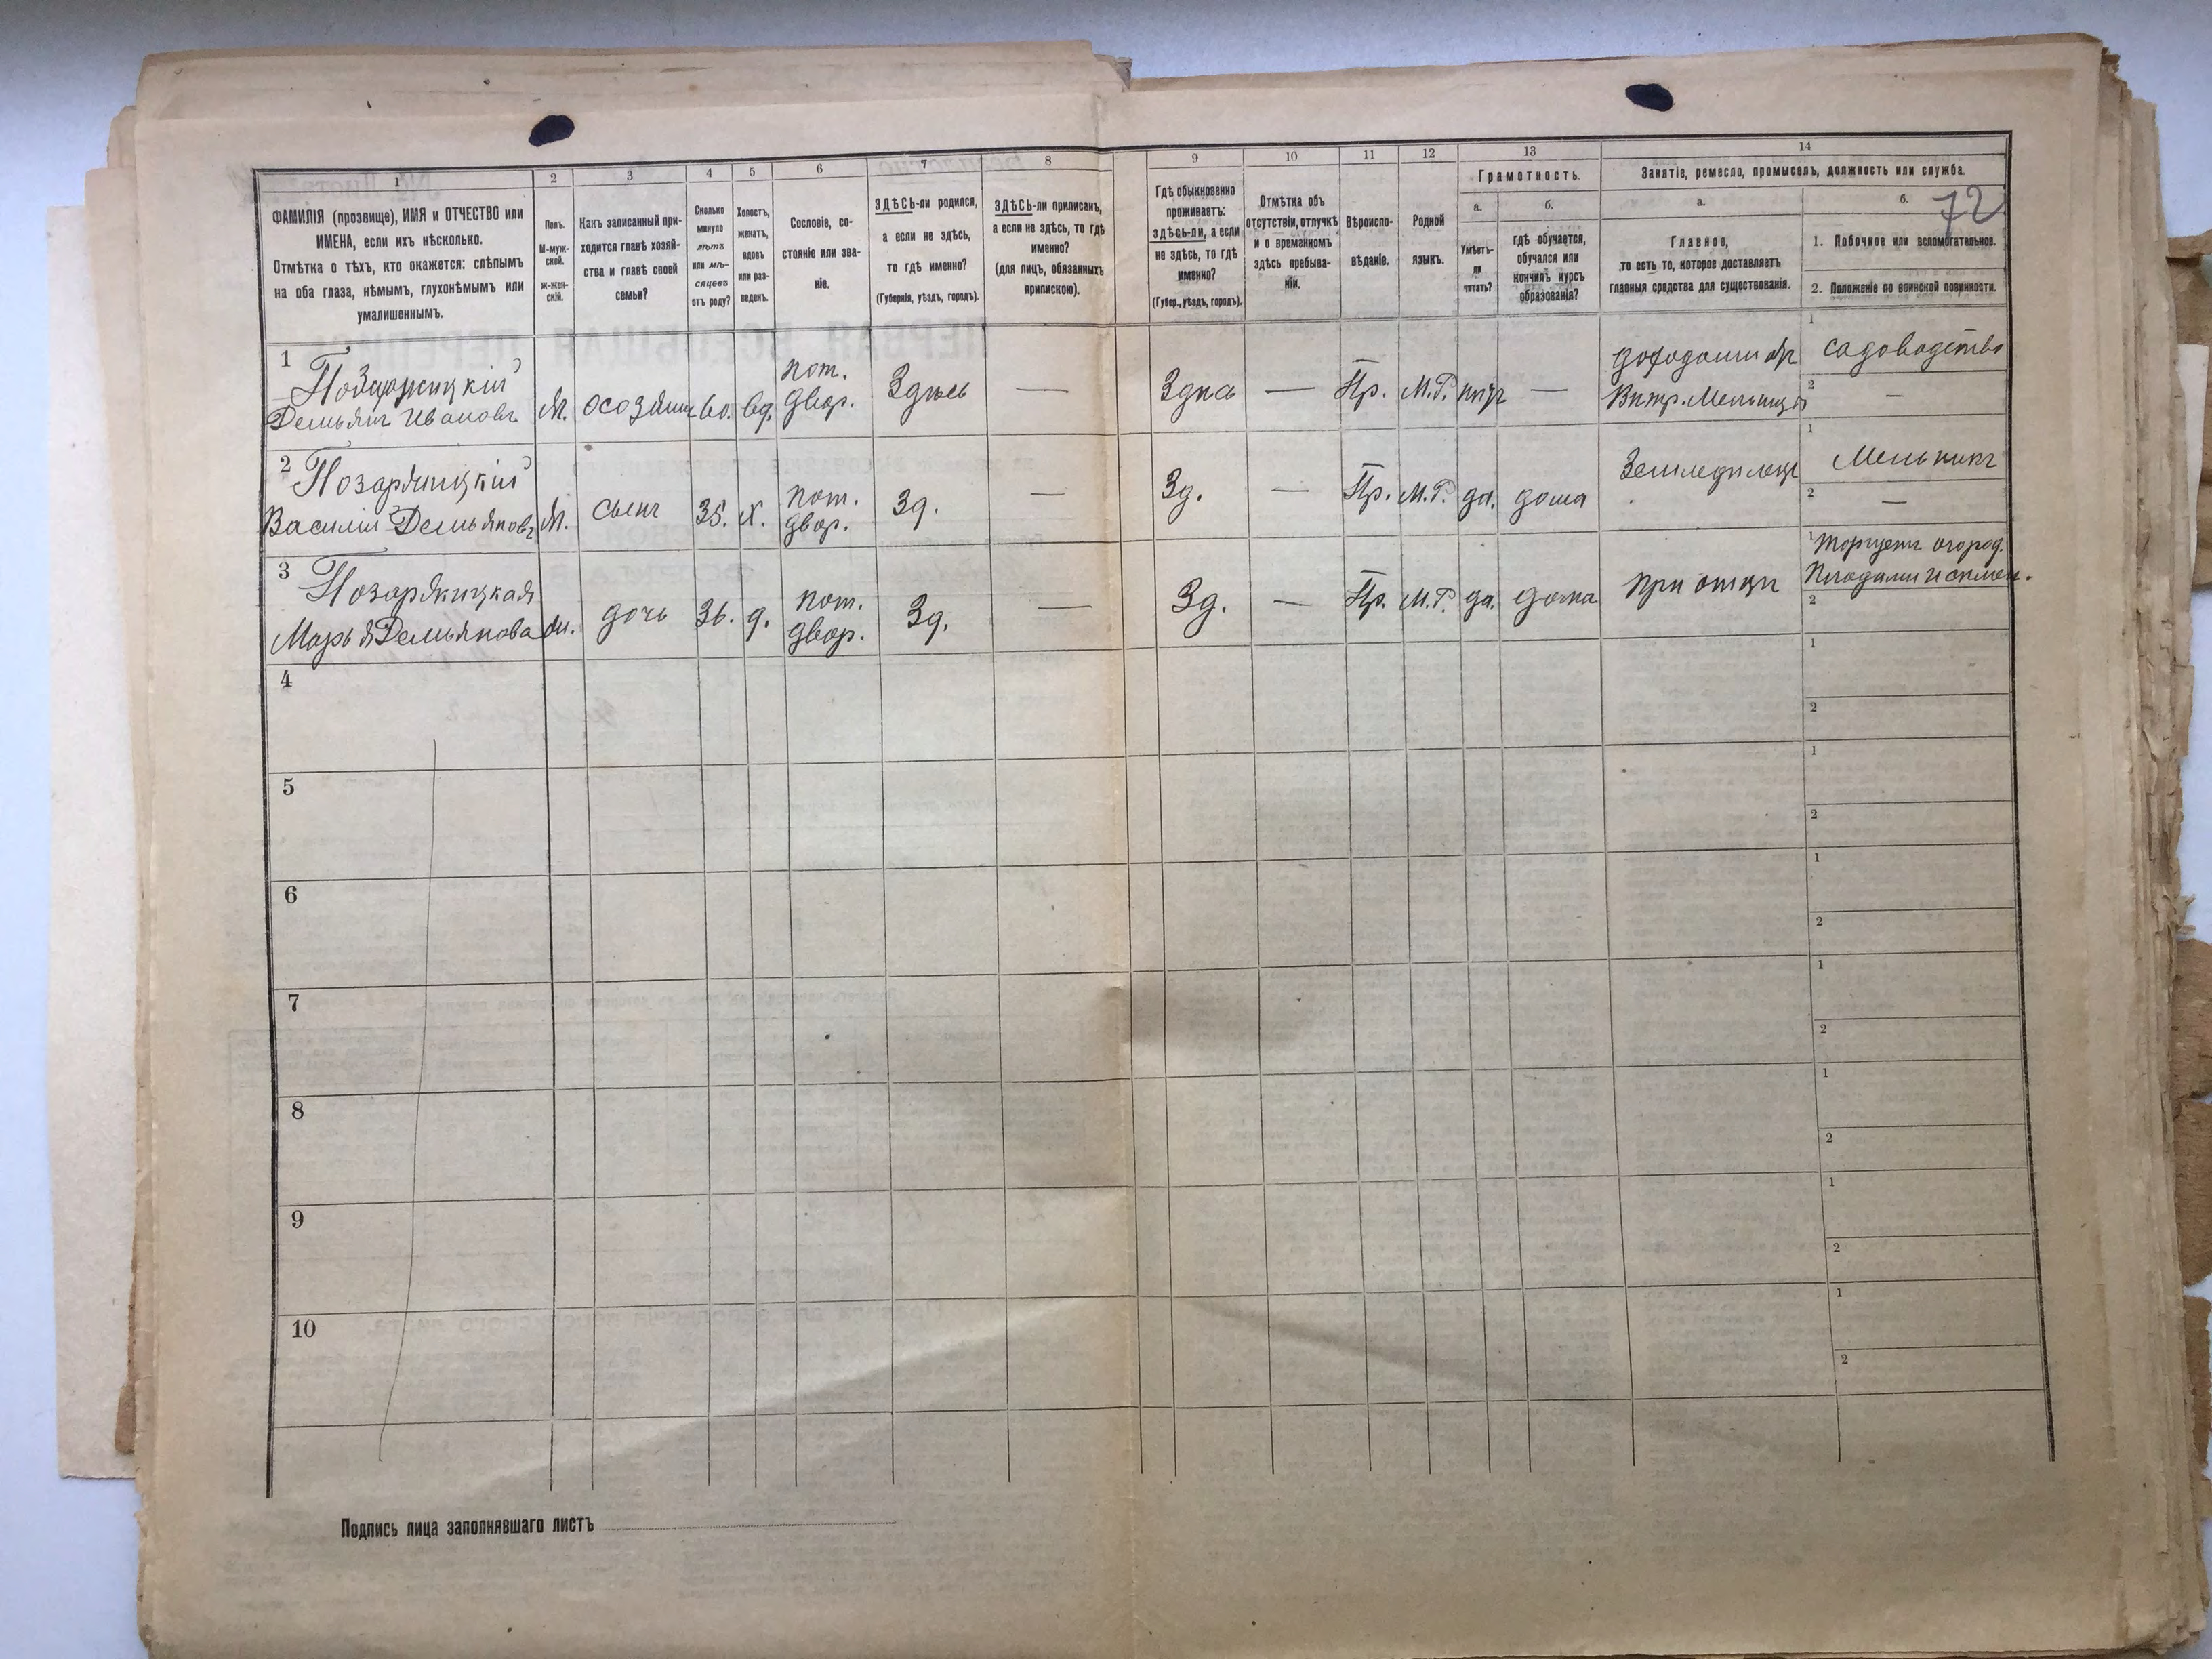 72
1
ФАМИЛІЯ (прозвище), ИМЯ и ОТЧЕСТВО или
ИМЕНА, если ихъ нѣсколько.
Отмѣтка о тѣхъ, кто окажется: слѣпымъ
на оба глаза, нѣмымъ, глухонѣмымъ или
умалишеннымъ.
2
Полъ.
М-муж-
ской.
ж-жен-
скій.
3
Какъ записанный при-
ходится главѣ хозяй-
ства и главѣ своей
семьи?
4
Сколько
минуло
лѣтъ
или мѣ-
сяцевъ
отъ роду?
5
Холостъ,
женатъ,
вдовъ
или раз-
веденъ.
6
Сословіе, со-
стояніе или зва-
ніе.
7
ЗДѢСЬ-ли родился,
а если не здѣсь,
то гдѣ именно?
(Губернія, уѣздъ, городъ).
8
ЗДѢСЬ-ли приписанъ,
а если не здѣсь, то гдѣ
именно?
(для лицъ, обязанныхъ
припискою).
9
Гдѣ обыкновенно
проживаетъ:
здѣсь-ли, а если
не здѣсь, то гдѣ
именно?
(Губер., уѣздъ, городъ).
10
Отмѣтка объ
отсутствіи, отлучкѣ
и о временномъ
здѣсь пребыва-
ніи.
11
Вѣроиспо-
вѣданіе.
12
Родной
языкъ.
13
Грамотность.
а.
Умѣетъ-
ли
читать?
б.
гдѣ обучается,
обучался или
кончилъ курсъ
образованія?
14
Занятіе, ремесло, промыселъ, должность или служба.
а.
Главное,
то есть то, которое доставляетъ
главныя средства для существованія.
б.
1. Побочное или вспомогательное.
2. Положеніе по воинской повинности.
1
Демьян Иванов
М.
60.
вд.
пот.
двор.
Здѣсь
—
—
Пр.
М.Р.
—
Вѣтр. Мельницы
1
садоводство
2
—
2
Позаряицкій
Василій Демьянов
М.
сынъ
35.
х.
пот.
двор.
Зд.
—
Зд.
—
Пр.
М.Р.
да.
дома
Земледѣлец
1
Мельник
2
—
3
Позаряицкая
Марья Демьянова
дочь
36.
д.
пот.
двор.
Зд.
—
Зд.
—
Пр.
М.Р.
да.
дома
при отцѣ
1
огород.
Плодами и
2
4
1
2
5
1
2
6
1
2
7
1
2
8
1
2
9
1
2
10
1
2
Подпись лица заполнявшаго листъ